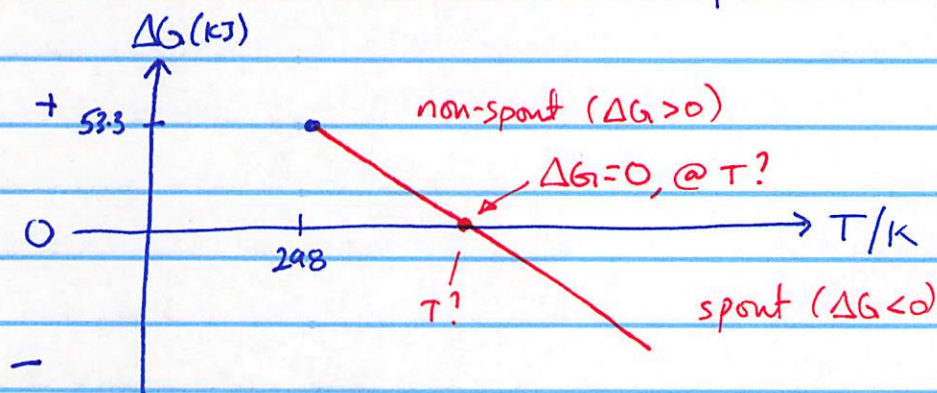 ΔG(KJ)
+
53.3
non-spont (ΔG>0)
ΔG=0, @ T?
0
T/K
298
T?
spont (ΔG<0)
-